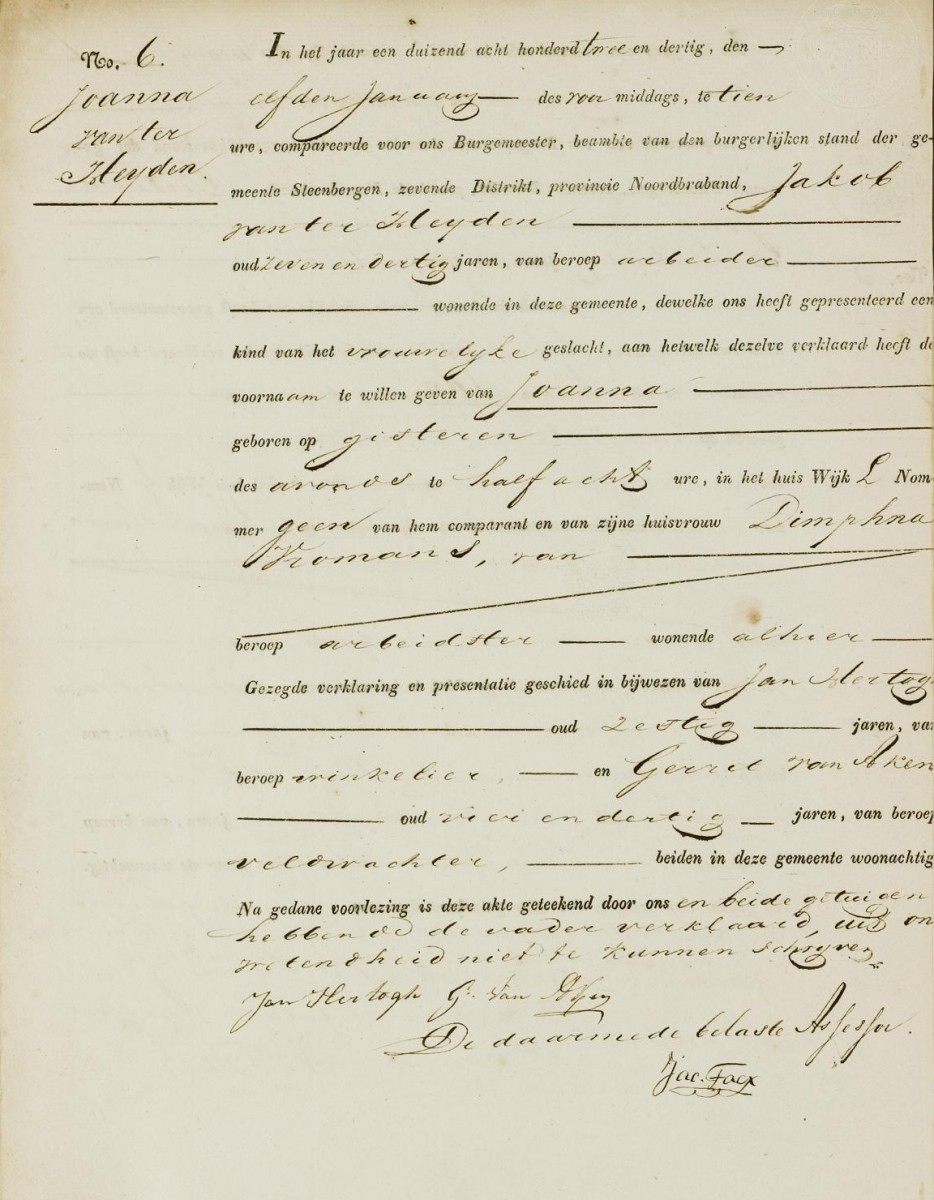 No. 6.
Joanna
van ter
Heyden.
In het jaar een duizend acht honderd twee en dertig, den
elfden January des voor middags, te tien
ure, compareerde voor ons Burgemeester, beambte van den burgerlijken stand der ge-
meente Steenbergen, zevende Distrikt, provincie Noordbraband, Jakob
van ter Heyden
oud zeven en dertig jaren, van beroep arbeider
wonende in deze gemeente, dewelke ons heeft gepresenteerd een
kind van het vrouwelyke geslacht, aan hetwelk dezelve verklaard heeft de
voornaam te willen geven van Joanna
geboren op gisteren
des avonds te half acht ure, in het huis Wijk L Nom-
mer geen van hem comparant en van zijne huisvrouw Dimphna
Komans, van
beroep arbeidster wonende alhier
Gezegde verklaring en presentatie geschied in bijwezen van Jan Hertogh
oud zestig jaren, van
beroep winkelier, en Gerrit van Aken
oud vier en dertig jaren, van beroep
veldwachter, beiden in deze gemeente woonachtig
Na gedane voorlezing is deze akte geteekend door ons en beide getuigen
hebbende de vader verklaard, uit on
wetendheid niet te kunnen schryven
Jan Hertogh G. Van Aken
De daarmede belaste Assessor.
Jac. Faex